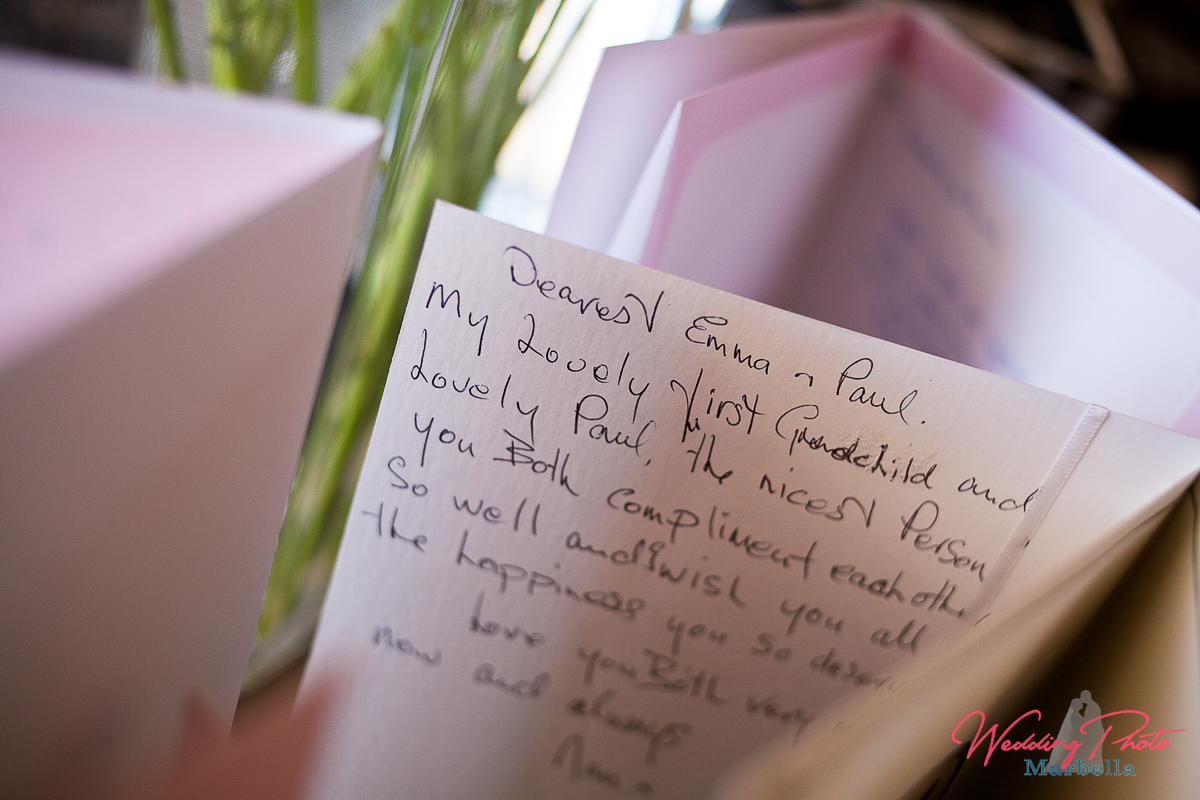 Dearest Emma & Paul.
My Lovely first Grandchild and
Lovely Paul, the nicest Person
you Both compliment each oth
So well and I wish you all
the happiness you so deserv
Love you Both very
now and always
Wedding Photo
Marbella